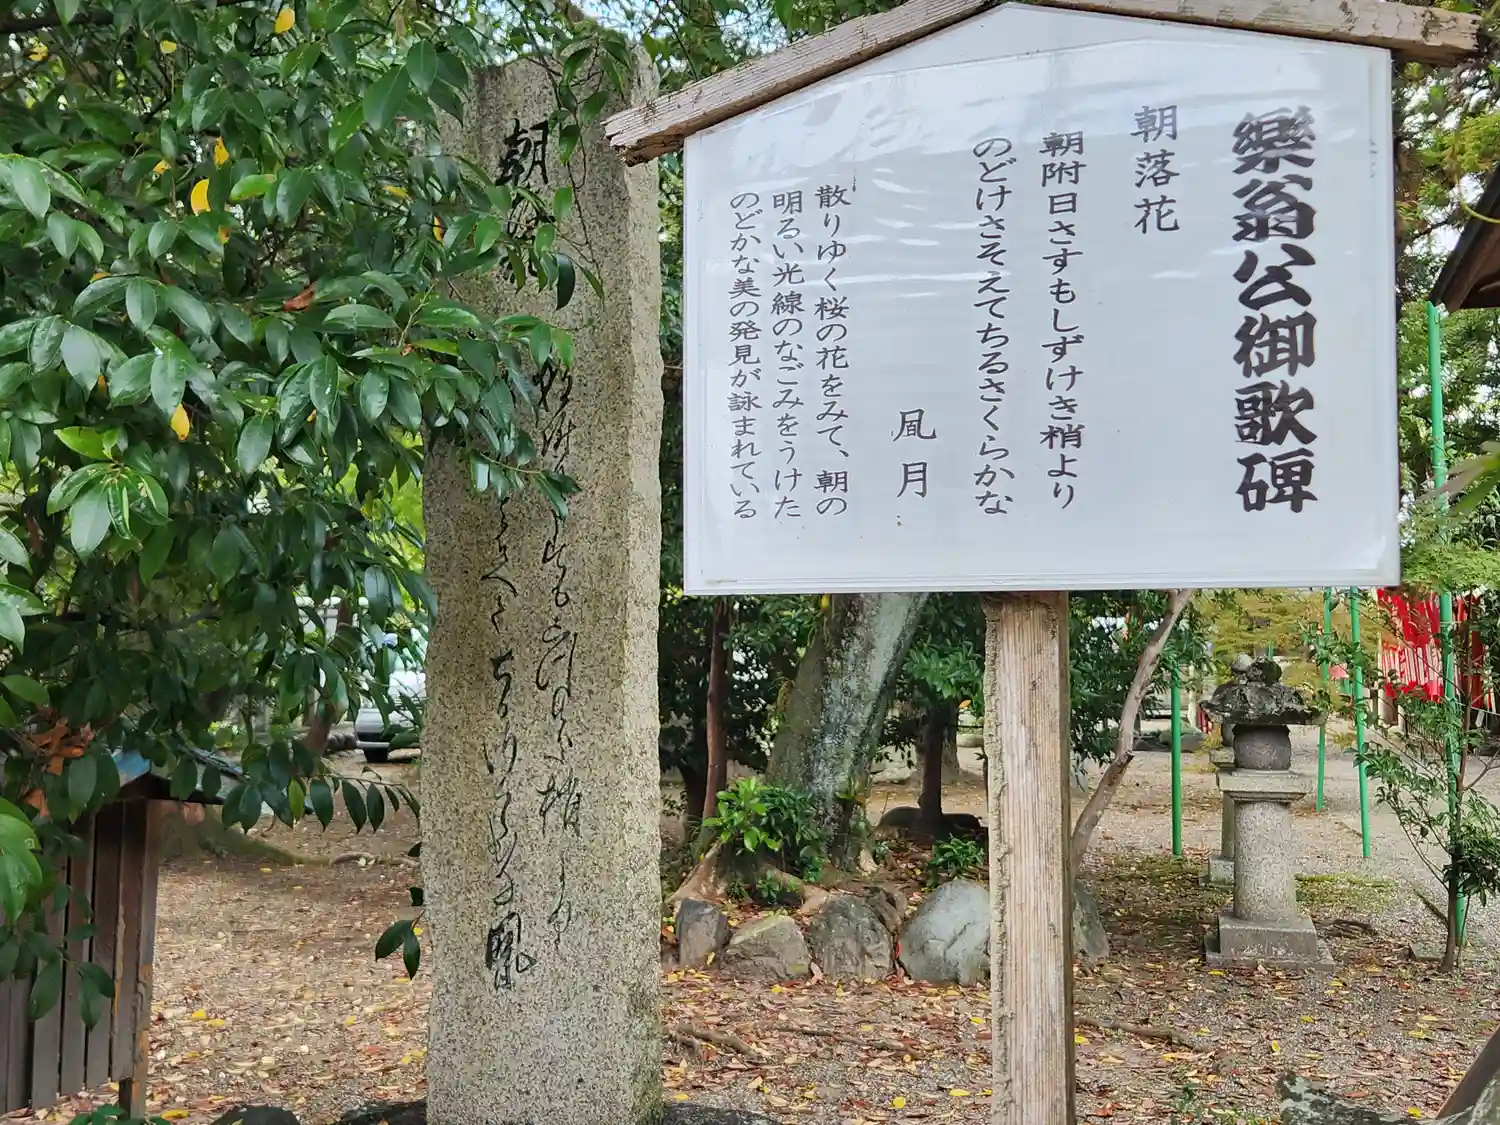 樂翁公御歌碑
朝落花
朝附日さすもしずけき梢より
のどけさそえてちるさくらかな
凬月
散りゆく桜の花をみて、朝の
明るい光線のなごみをうけた
のどかな美の発見が詠まれている
朝